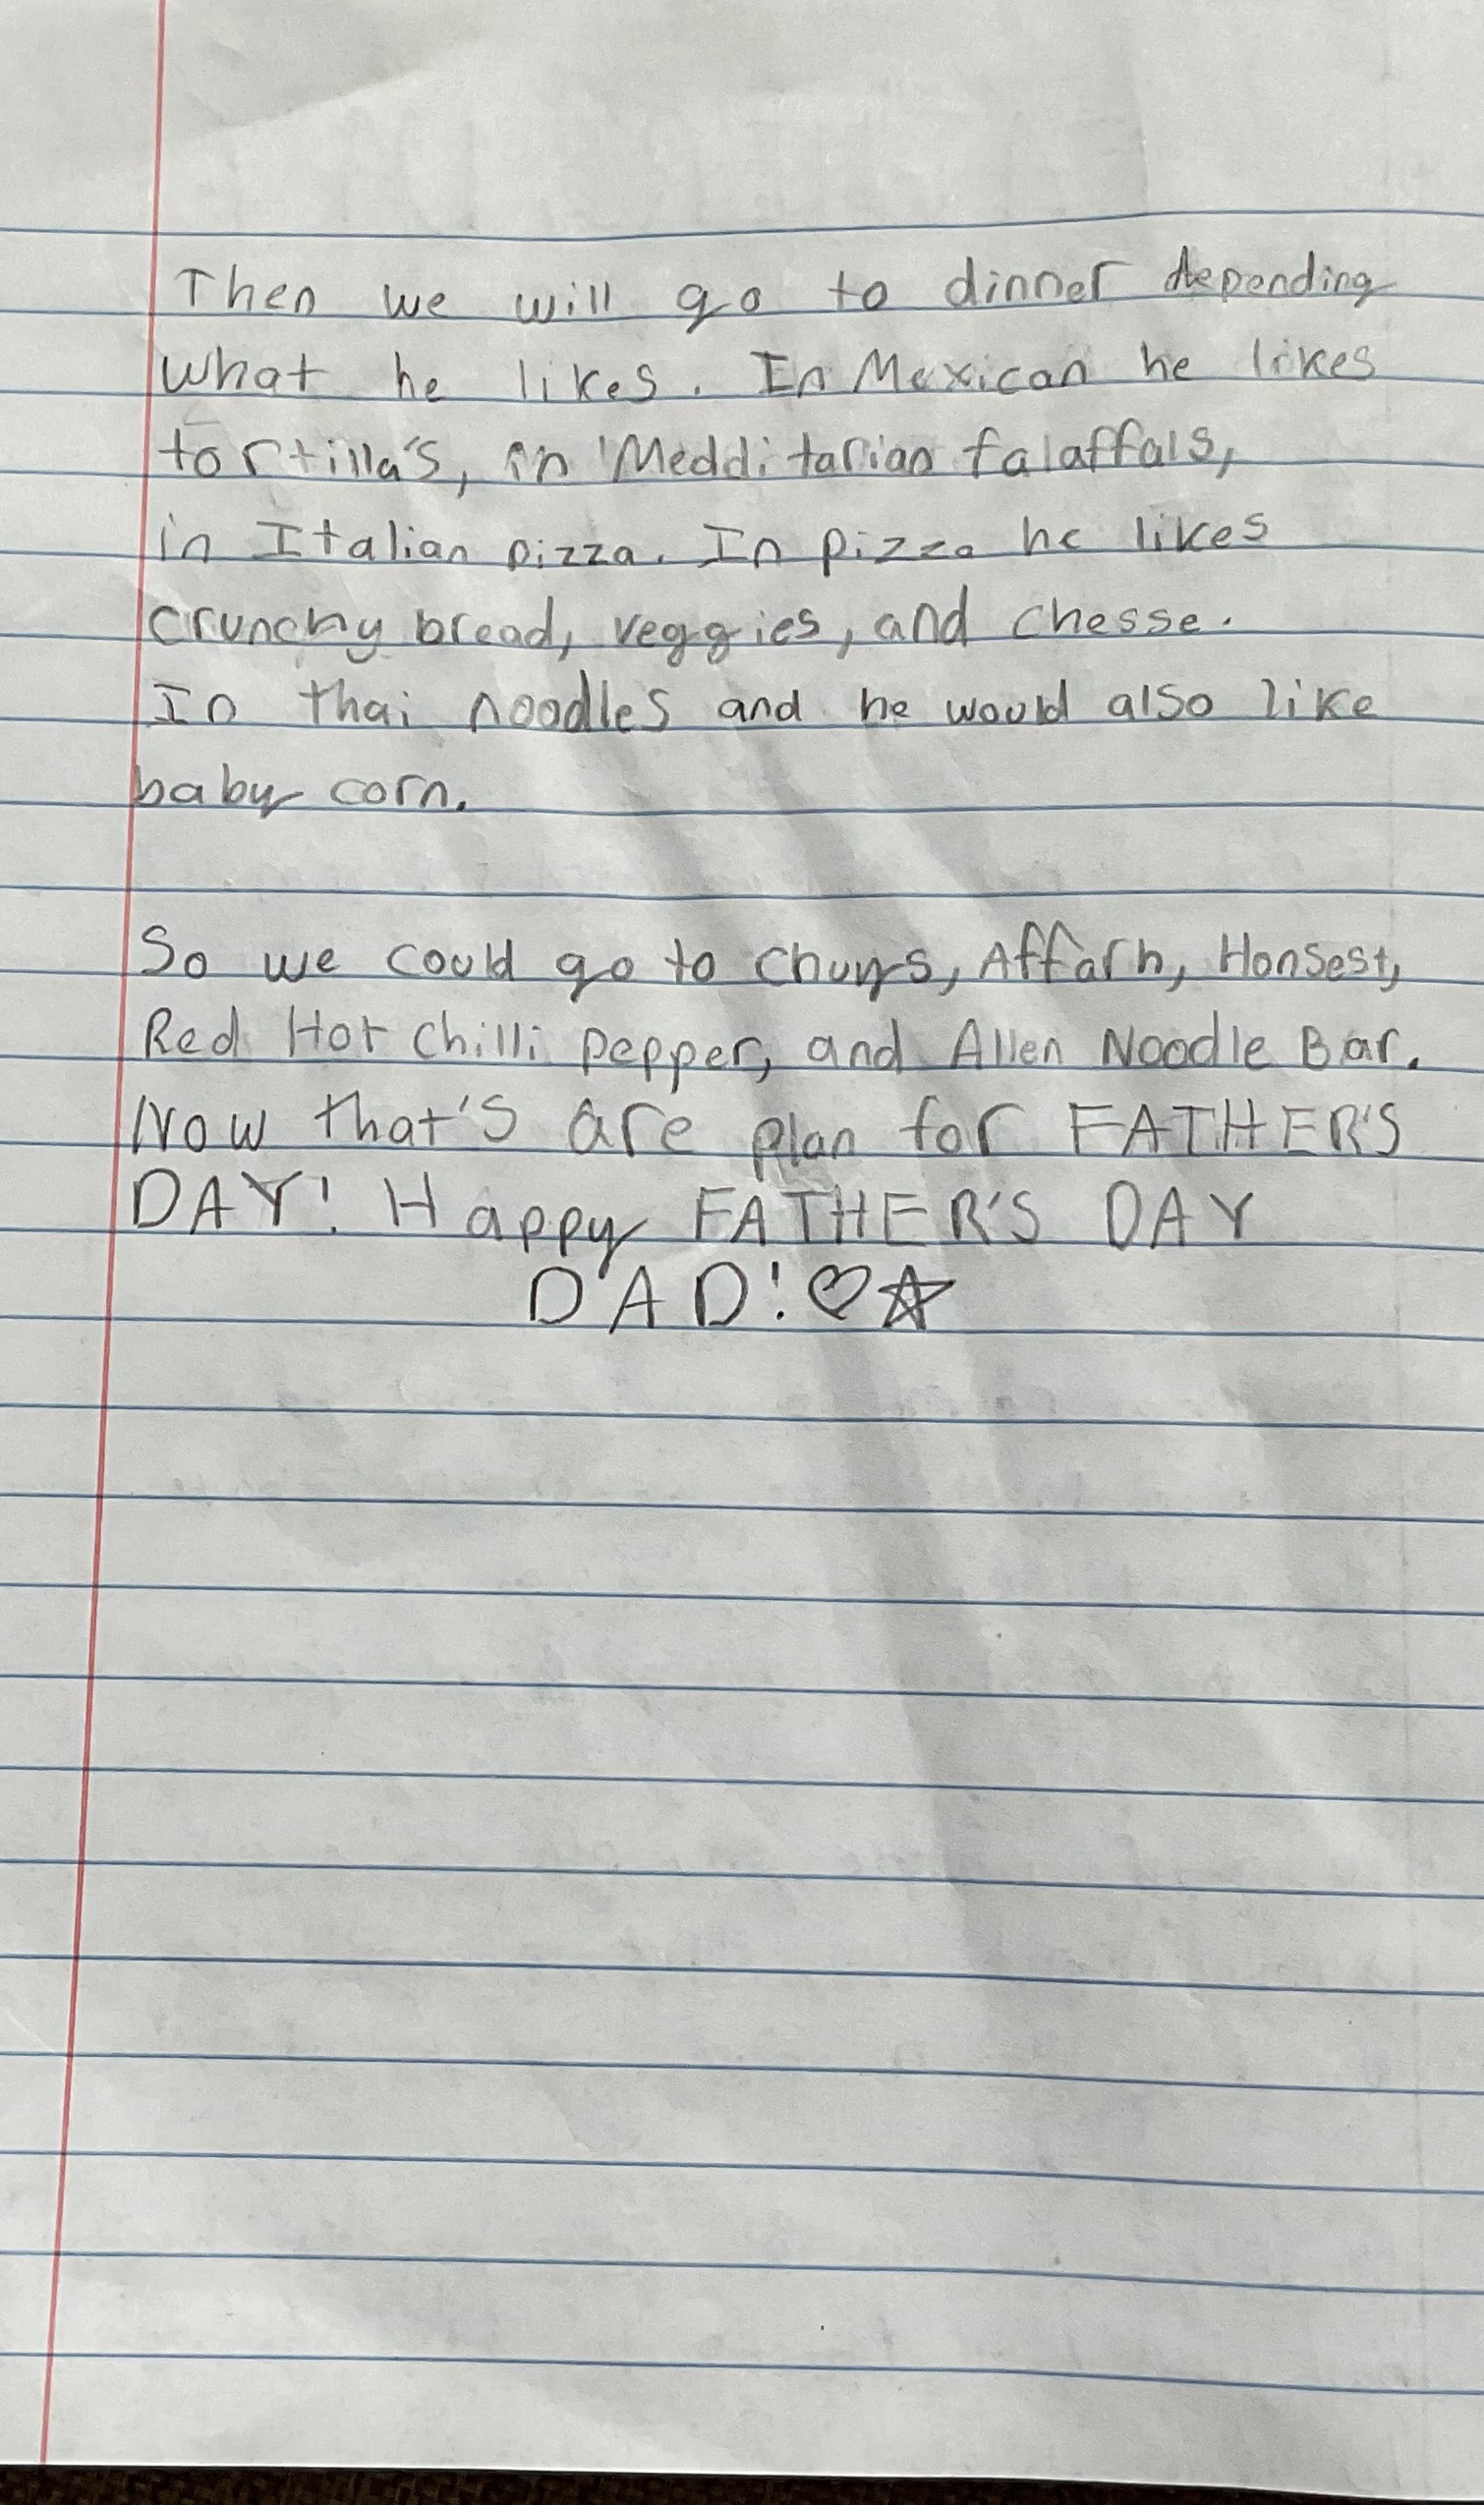 Then we will go to dinner depending
what he likes. In Mexican he likes
tortilla's, in Medditarian falaffals,
in Italian pizza. In pizza he likes
crunchy bread, veggies, and chesse.
In thai noodles and he would also like
baby corn.
So we could go to chuys, Affarh, Honsest,
Red Hot chilli pepper, and Allen Noodle Bar.
Now that's are plan for FATHER'S
DAY! Happy FATHER'S DAY
DAD!♡☆